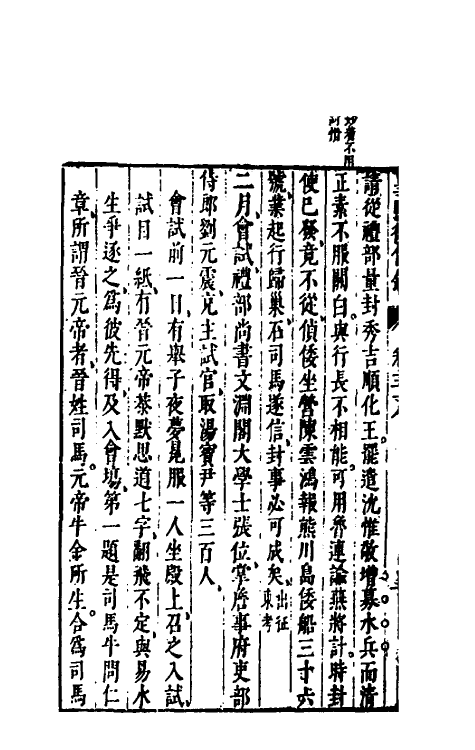 妙着不用
可惜
請從禮部量封秀吉順化王罷遣沈惟敬增募水兵而清
正素不服關白與行長不相能可用魯連諭燕將計時封
使已發竟不從偵倭坐營陳雲鴻報熊川島倭船三十六
號業起行歸巢石司馬遂信封事必可成矣出征
東考
二月會試禮部尚書文淵閣大學士張位掌詹事府吏部
侍郎劉元震充主試官取湯賓尹等三百人
會試前一日有舉子夜夢見服一人坐殿上召之入試
試目一紙有晉元帝恭默思道七字翻飛不定與易水
生爭逐之為彼先得及入會場第一題是司馬牛問仁
章所謂晉元帝者晉姓司馬元帝牛金所生合為司馬